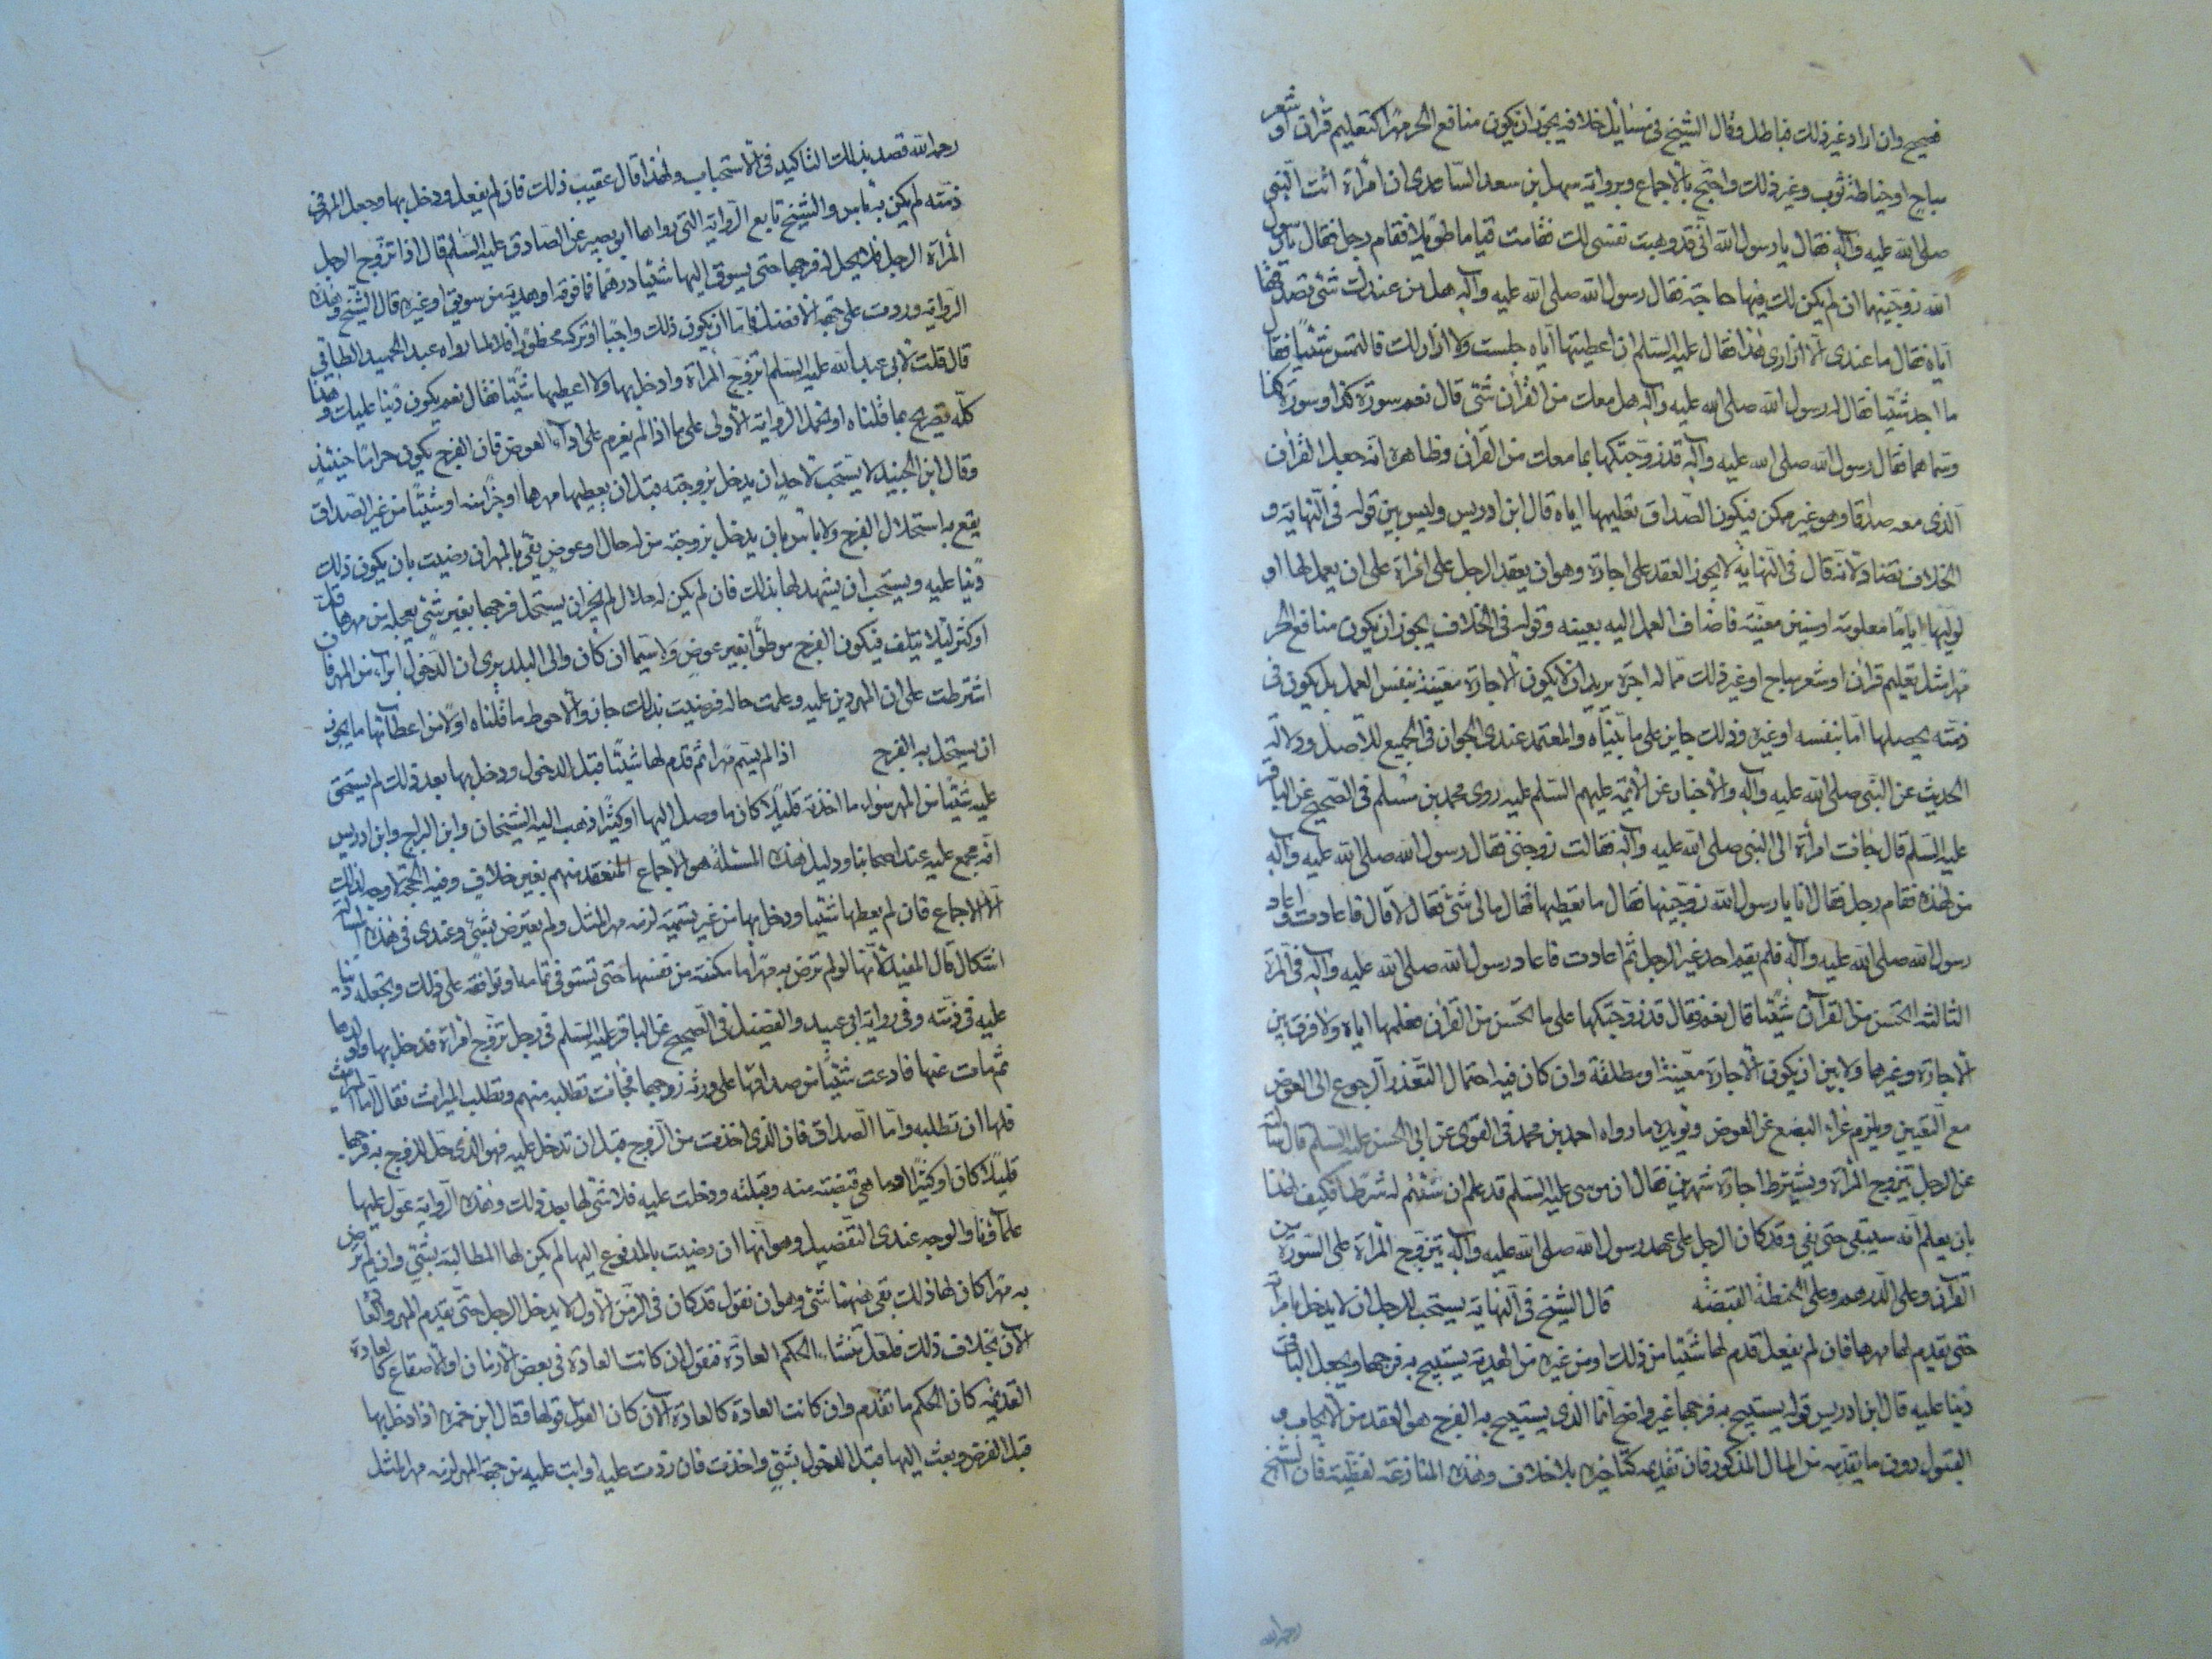 فصحيح وان اراد غير ذلك فباطل وقال الشيخ في مسائل خلافه يجوز ان يكون منافع الحر مهرًا كتعليم قرآن او شعر
مباح او خياطة ثوب وغير ذلك واحتج بالاجماع وبرواية سهل بن سعد الساعدى ان امرأة اتت النبى
صلى الله عليه وآله فقال يا رسول الله انى قد وهبت نفسى لك فقامت قياما طويلا فقام رجل فقال يا رسول
الله زوجنيها ان لم يكن لك فيها حاجة فقال رسول الله صلى الله عليه وآله هل من عندك شئ تصدقها
اياه فقال ما عندى الا ازارى هذا فقال عليه السلم ان اعطيتها اياه جلست ولا ازار لك فالتمس شيئا فقال
ما اجد شيئا فقال له رسول الله صلى الله عليه وآله هل معك من القرآن شئ قال نعم سورة كذا وسورة كذا
وسماهما فقال رسول الله صلى الله عليه وآله قد زوجتكها بما معك من القرآن وظاهره انه جعل القرآن
الذى معه صداقا وهو غير ممكن فيكون الصداق تعليمها اياه قال ابن ادريس وليس بين قوله فى النهاية و
الخلاف تضاد لانه قال فى النهاية لا يجوز العقد على اجارة وهو ان يعقد الرجل على امراة على ان يعمل لها او
لوليها اياما معلومة او سنين معينة فاضاف العمل اليه بعينه وقوله فى الخلاف يجوز ان يكون منافع الحر
مهرا مثل تعليم قرآن او شعر مباح او غير ذلك مما له اجرة يريد ان لا يكون الاجارة معينة بنفس العمل بل يكون فى
ذمته يحصلها اما بنفسه او غيره وذلك جايز على ما بيناه والمعتمد عندى الجواز فى الجميع للاصل ودلالة
الحديث عن النبى صلى الله عليه وآله والاخبار عن الائمة عليهم السلم عليه روى محمد بن مسلم فى الصحيح عن الباقر
عليه السلم قال جائت امرأة الى النبى صلى الله عليه وآله فقالت زوجنى فقال رسول الله صلى الله عليه وآله
من لهذه فقام رجل فقال انا يا رسول الله زوجنيها فقال ما تعطيها فقال ما لى شئ فقال لا قال فاعادت فاعاد
رسول الله صلى الله عليه وآله فلم يقم احد غير الرجل ثم اعادت فاعاد رسول الله صلى الله عليه وآله فى المرة
الثالثة اتحسن من القرآن شيئا قال نعم فقال قد زوجتكها على ما تحسن من القرآن فعلمها اياه ولا فرق بين
الاجارة وغيرها ولا بين ان يكون الاجارة معينة او مطلقة وان كان فيه احتمال التعذر الرجوع الى العوض
مع التعيين ويلزم عراء البضع عن العوض ويؤيده ما رواه احمد بن محمد فى القوى عن ابى الحسن عليه السلم قال سألته
عن الرجل يتزوج المرأة ويشترط اجارة شهرين فقال ان موسى عليه السلم قد علم ان سيتم له شرطه فكيف لهذا
بان يعلم انه سيبقى حتى يفى وقد كان الرجل على عهد رسول الله صلى الله عليه وآله يتزوج المرأة على السورة من
القرآن وعلى الدرهم وعلى الحنطة القبضة قال الشيخ فى النهاية يستحب للرجل ان لا يدخل بامرأته
حتى يقدم لها مهرها فان لم يفعل قدم لها شيئا من ذلك او من غيره من الهدية يستبيح به فرجها ويجعل الباقى
دينا عليه قال ابن ادريس قوله يستبيح به فرجها غير واضح انما الذى يستبيح به الفرج هو العقد من الايجاب و
القبول دون ما يقدمه من المال المذكور فان تقديمه كتاخيره بلا خلاف وهذه المنازعة لفظية فان الشيخ
رحمه الله
رحمه الله قصد بذلك التاكيد فى الاستحباب ولهذا قال عقيب ذلك فان لم يفعل ودخل بها وجعل المهر فى
ذمته لم يكن به باس والشيخ تابع الرواية التى رواها ابو بصير عن الصادق عليه السلم قال اذا تزوج الرجل
المرأة الرجل فلا يحل له فرجها حتى يسوق اليها شيئا درهما فما فوقه او هدية من سويق او غيره قال الشيخ وهذه
الرواية وردت على جهة الافضل فاما ان يكون ذلك واجبا او تركه محظورا فلا لما رواه عبد الحميد الطائى
قال قلت لابى عبد الله عليه السلم اتزوج المرأة وادخل بها ولا اعطيها شيئا فقال نعم يكون دينا عليك وهذا
كله تصريح بما قلناه او تحمل الرواية الاولى على ما اذا لم يعزم على اداء العوض فان الفرج يكون حراما حينئذ
وقال ابن الجنيد لا يستحب لاحد ان يدخل بزوجته قبل ان يعطيها مهرها او جزءا منه او شيئا من غير الصداق
يقع به استحلال الفرج ولا باس بان يدخل بزوجته من له حال او عوض يفى بالمهر ان رضيت بان يكون ذلك
دينا عليه ويستحب ان يشهد لها بذلك فان لم يكن له حلال لم يجز ان يستحل فرجها بغير شئ يعجله من مهرها قل
او كثر لئلا يتلف فيكون الفرج موطوا بغير عوض ولا سيما ان كان والى البلد يرى ان الدخول ابراء من المهر فان
اشترطت على ان المهر دين عليه وعلمت حاله فرضيت بذلك جاز والاحوط ما قلناه اولا من اعطائها ما يجوز
ان يستحل به الفرج اذا لم يسم مهرا ثم قدم لها شيئا قبل الدخول ودخل بها بعد ذلك لم يستحق
عليه شيئا من المهر سواء ما اخذته قليلا كان ما وصل اليها او كثيرا ذهب اليه الشيخان وابن البراج وابن ادريس
انه مجمع عليه عند اصحابنا ودليل هذه المسئلة هو الاجماع المنعقد منهم بغير خلاف وفيه الحجة لا وجه لذلك
الا الاجماع فان لم يعطها شيئا ودخل بها من غير تسمية لزمه مهر المثل ولم يعترض بشئ وعندى فى هذه المسألة
اشكال قال المفيد لانها لو لم ترض به مهرا ما مكنته من نفسها حتى تستوفى تمامه او توافقه على ذلك وتجعله دينا
عليه فى ذمته وفى رواية ابى عبيد والفضيل فى الصحيح عن الباقر عليه السلم فى رجل تزوج امرأة فدخل بها واولدها
ثم مات عنها فادعت شيئا من صداقها على ورثة زوجها فجائت تطلبه منهم وتطلب الميراث فقال اما الميراث
فلها ان تطلبه واما الصداق فان الذى اخذت من الزوج قبل ان تدخل عليه فهو الذى حل للزوج به فرجها
قليلا كان او كثيرا اذا هى قبضته منه وقبلته ودخلت عليه فلا شئ لها بعد ذلك وهذه الرواية عول عليها
علماؤنا والوجه عندى التفصيل وهو انها ان رضيت بالمدفوع اليها لم يكن لها المطالبة بشئ وان لم ترض
به مهرا كان لها ذلك بقى ههنا شئ وهو ان نقول قد كان فى الزمن الاول لا يدخل الرجل حتى يقدم المهر والعادة
الآن بخلاف ذلك فلعل منشاء الحكم العادة فنقول ان كانت العادة فى بعض الازمان او الاصقاع كالعادة
القديمة كان الحكم ما تقدم وان كانت العادة كالعادة الآن كان القول قولها فقال ابن حمزة اذا دخل بها
قبل الفرض وبعث اليها قبل الدخول بشئ واخذت فان ردت عليه او ابت عليه من جهة المهر لزمه مهر المثل